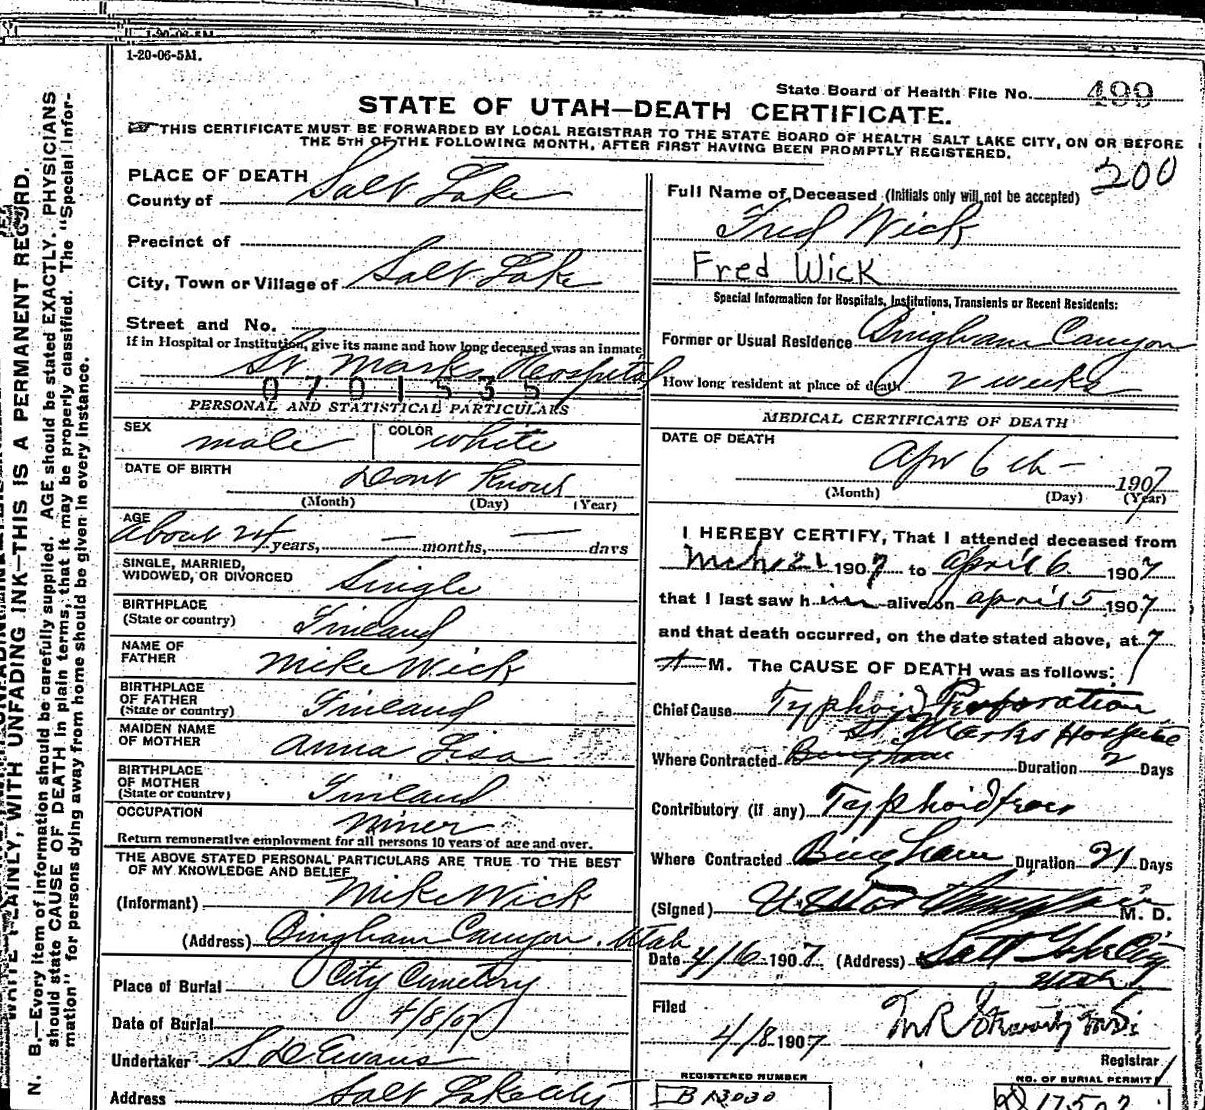 1-20-06-5M.
State Board of Health File No. 499
STATE OF UTAH—DEATH CERTIFICATE.
THIS CERTIFICATE MUST BE FORWARDED BY LOCAL REGISTRAR TO THE STATE BOARD OF HEALTH SALT LAKE CITY, ON OR BEFORE
THE 5TH OF THE FOLLOWING MONTH, AFTER FIRST HAVING BEEN PROMPTLY REGISTERED.
200
PLACE OF DEATH
County of Salt Lake
Precinct of
City, Town or Village of Salt Lake
Street and No.
If in Hospital or Institution, give its name and how long deceased was an inmate
St Marks Hospital
0701535
PERSONAL AND STATISTICAL PARTICULARS
SEX male COLOR white
DATE OF BIRTH Dont Know
(Month) (Day) (Year)
AGE
About 24 years, — months, — days
SINGLE, MARRIED,
WIDOWED, OR DIVORCED Single
BIRTHPLACE
(State or country) Finland
NAME OF
FATHER Mike Wick
BIRTHPLACE
OF FATHER
(State or country) Finland
MAIDEN NAME
OF MOTHER Anna Lisa
BIRTHPLACE
OF MOTHER
(State or country) Finland
OCCUPATION Miner
Return remunerative employment for all persons 10 years of age and over.
THE ABOVE STATED PERSONAL PARTICULARS ARE TRUE TO THE BEST
OF MY KNOWLEDGE AND BELIEF
(Informant) Mike Wick
(Address) Bingham Canyon, Utah
Place of Burial City Cemetery
Date of Burial 4/8/07
Undertaker S D Evans
Address Salt Lake City
Full Name of Deceased (Initials only will not be accepted)
Fred Wick
Fred Wick
Special Information for Hospitals, Institutions, Transients or Recent Residents:
Former or Usual Residence Bingham Canyon
How long resident at place of death 2 weeks
MEDICAL CERTIFICATE OF DEATH
DATE OF DEATH
Apr 6th — 1907
(Month) (Day) (Year)
I HEREBY CERTIFY, That I attended deceased from
Mch 21 1907 to April 6 1907
that I last saw him alive on april 5 1907
and that death occurred, on the date stated above, at 7
A M. The CAUSE OF DEATH was as follows:
Chief Cause Typhoid Perforation
St. Marks Hospital
Where Contracted Bingham Duration 2 Days
Contributory (If any) Typhoid fever
Where Contracted Bingham Duration 21 Days
(Signed) M. D.
Date 4/6 1907 (Address) Salt Lake City
Utah
Filed
4/8 1907
Registrar
REGISTERED NUMBER
B 13030
NO. OF BURIAL PERMIT
17502
N. B.—Every item of information should be carefully supplied. AGE should be stated EXACTLY. PHYSICIANS
should state CAUSE OF DEATH in plain terms, that it may be properly classified. The "Special Infor-
mation" for persons dying away from home should be given in every instance.
WRITE PLAINLY, WITH UNFADING INK—THIS IS A PERMANENT RECORD.